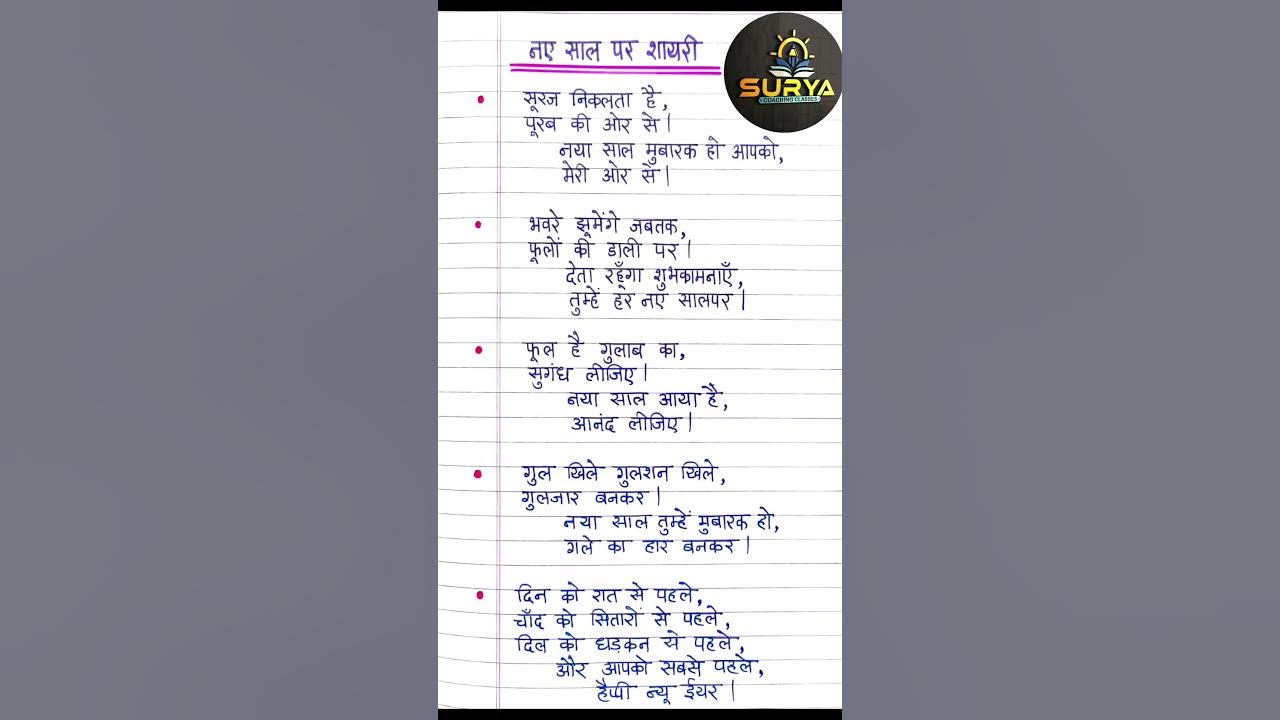 नए साल पर शायरी
SURYA
COACHING CLASSES
सूरज निकलता है,
पूरब की ओर से।
नया साल मुबारक हो आपको,
मेरी ओर से।
भवरे झूमेंगे जबतक,
फूलों की डाली पर।
देता रहूँगा शुभकामनाएँ,
तुम्हें हर नए सालपर।
फूल है गुलाब का,
सुगंध लीजिए।
नया साल आया है,
आनंद लीजिए।
गुल खिले गुलशन खिले,
गुलजार बनकर।
नया साल तुम्हें मुबारक हो,
गले का हार बनकर।
दिन को रात से पहले,
चाँद को सितारों से पहले,
दिल को धड़कन से पहले,
और आपको सबसे पहले,
हैप्पी न्यू ईयर।